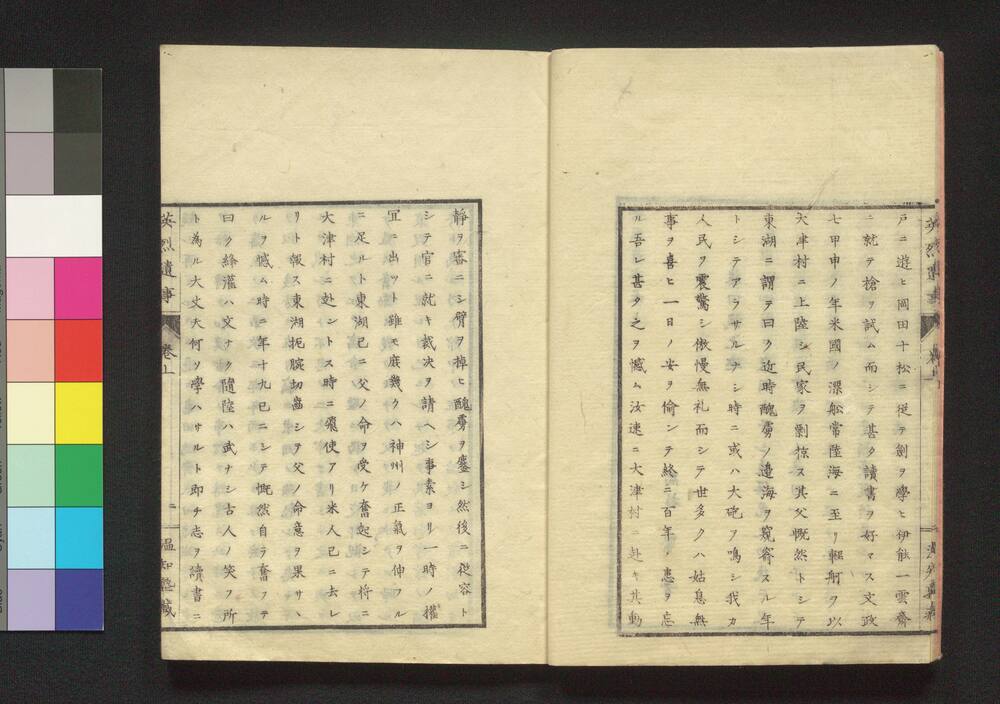 戸ニ遊ヒ岡田十松ニ従テ劍ヲ學ヒ伊能一雲齋
ニ就テ槍ヲ試ム而シテ甚タ讀書ヲ好マス文政
七甲申ノ年米國ノ漂舩常陸海ニ至リ輕舸ヲ以
大津村ニ上陸シ民家ヲ剽掠ス其父慨然トシテ
東湖ニ謂テ曰ク近時醜虜ノ邉海ヲ窺窬スル年
トシテアラサルナシ時ニ或ハ大砲ヲ鳴シ我カ
人民ヲ震驚シ傲慢無礼而シテ世多クハ姑息無
事ヲ喜ヒ一日ノ安ヲ偷ンテ終ニ百年ノ患ヲ忘
ル吾レ甚タ之ヲ憾ム汝速ニ大津村ニ赴キ其動
靜ヲ審ニシ臂ヲ掉ヒ醜虜ヲ鏖シ然後ニ從容ト
シテ官ニ就キ裁决ヲ請ヘシ事素ヨリ一時ノ權
冝ニ出ツト雖モ庻幾クハ神州ノ正氣ヲ伸フル
ニ足ルト東湖已ニ父ノ命ヲ受ケ奮起シテ将ニ
大津村ニ赴ントス時ニ飛使アリ米人已ニ去レ
リト報ス東湖扼腕切齒シテ父ノ命意ヲ果サヽ
ルヲ憾ム時ニ年十九已ニシテ慨然自ラ奮フテ
曰ク絳灌ハ文ナク隨陸ハ武ナシ古人ノ笑フ所
ト為ル大丈夫何ソ學ハサルト即チ志ヲ讀書ニ
英烈遺事
卷上
二
温知塾藏